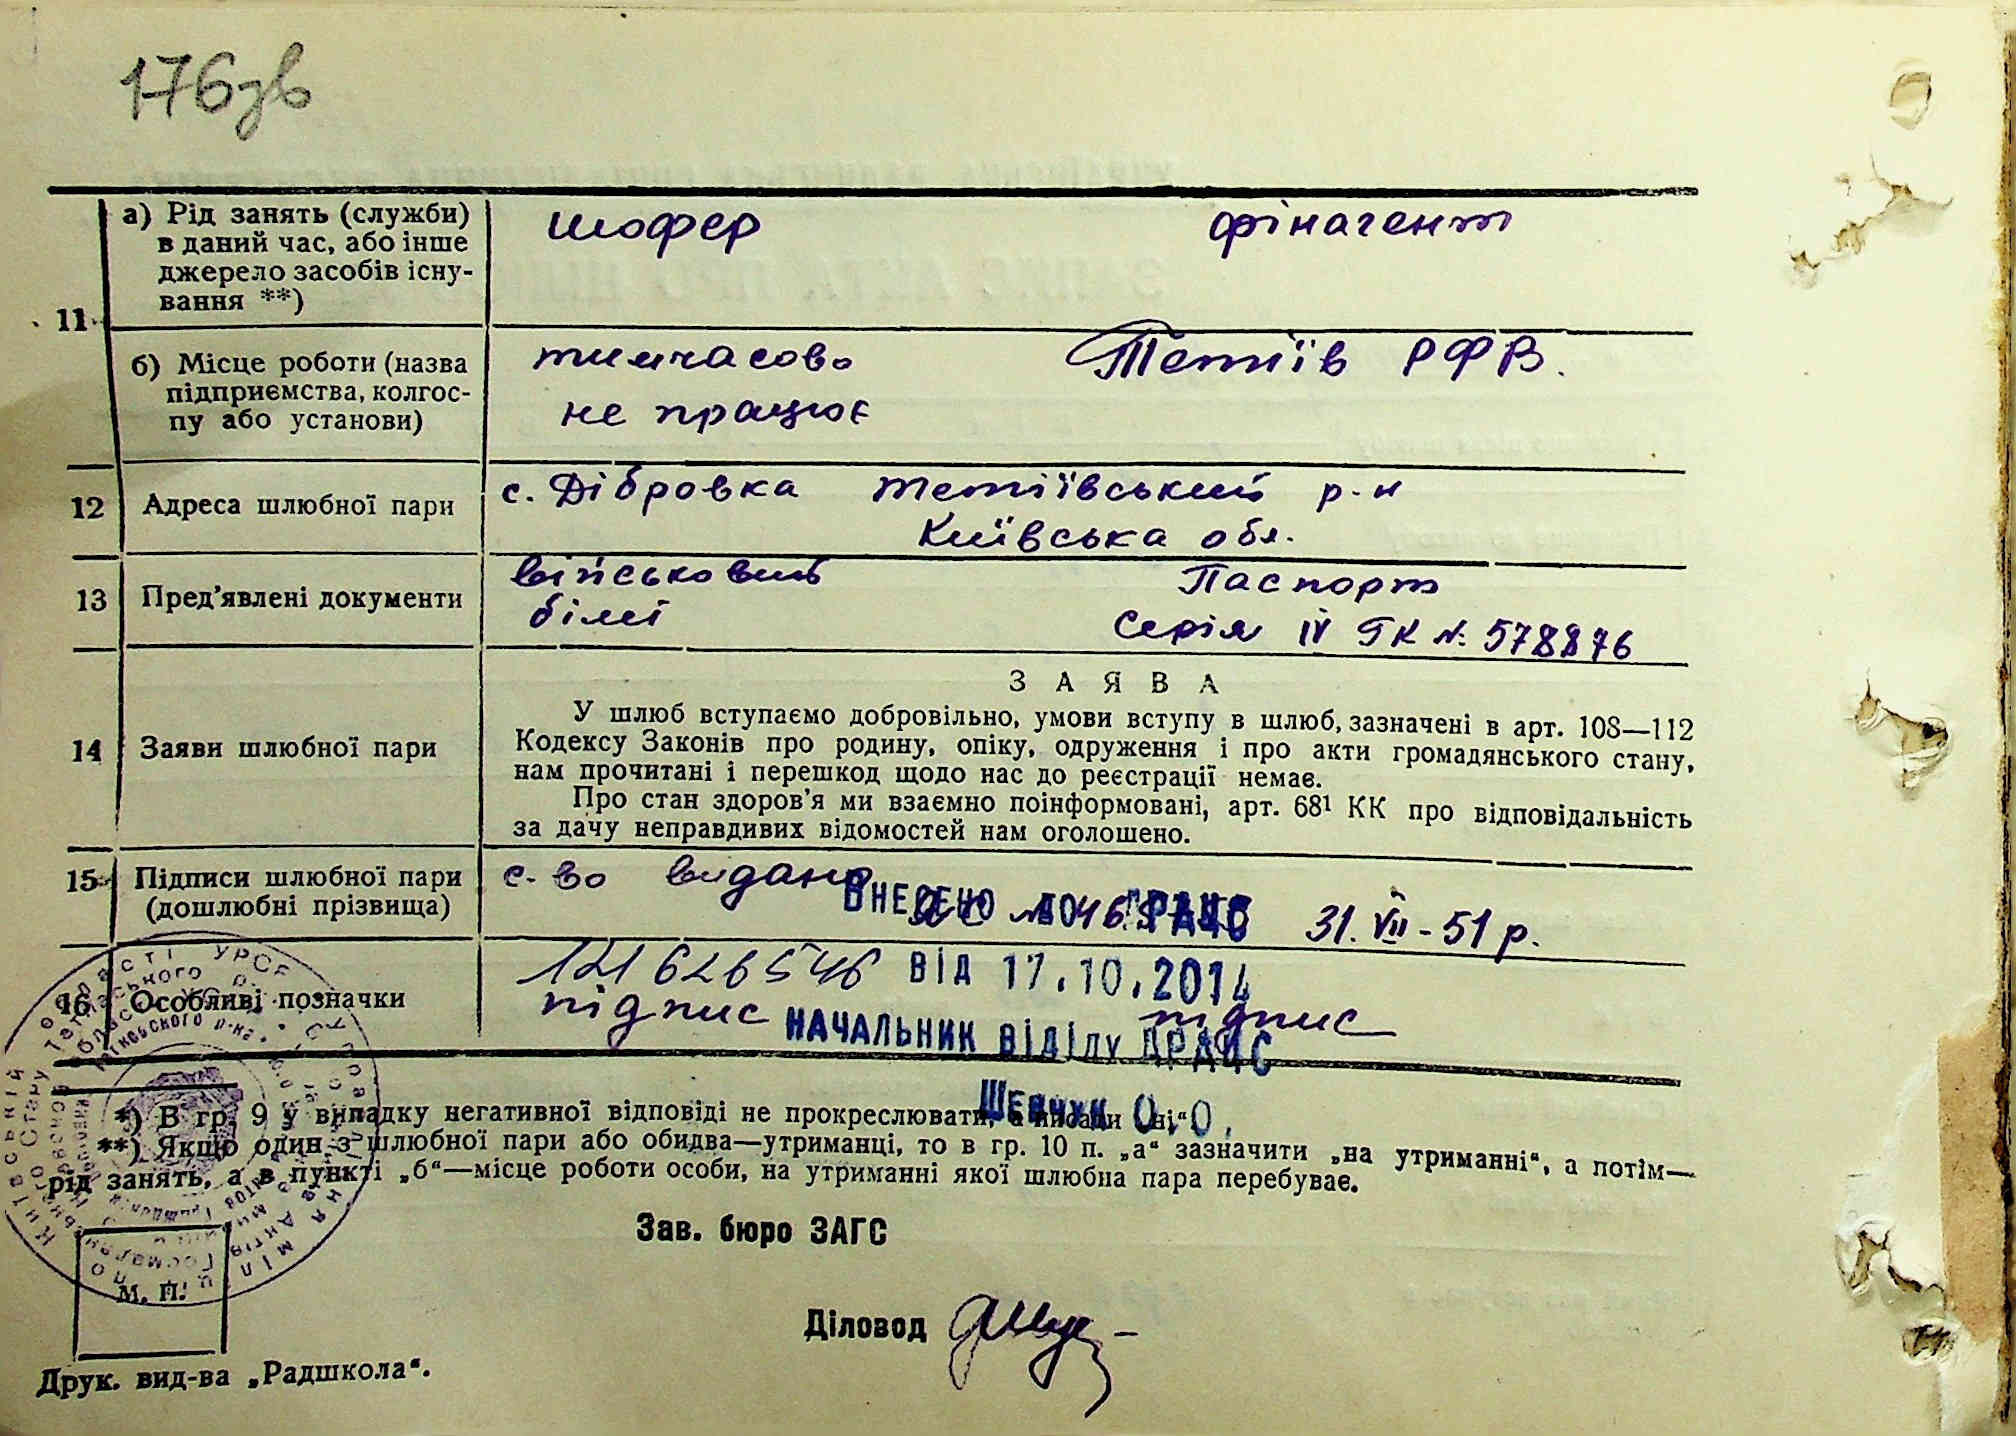 176зв
а) Рід занять (служби)
в даний час, або інше
джерело засобів існу-
вання **)
шофер фінагент
11
б) Місце роботи (назва
підприємства, колгос-
пу або установи)
тимчасово Тетіїв РФВ.
не працює
12 Адреса шлюбної пари
с. Дібровка тетіївський р-н
Київська обл.
13 Пред'явлені документи
військовий Паспорт
білет Серія IV ГК №: 578876
14 Заяви шлюбної пари
ЗАЯВА
У шлюб вступаємо добровільно, умови вступу в шлюб, зазначені в арт. 108—112
Кодексу Законів про родину, опіку, одруження і про акти громадянського стану,
нам прочитані і перешкод щодо нас до реєстрації немає.
Про стан здоров'я ми взаємно поінформовані, арт. 68¹ КК про відповідальність
за дачу неправдивих відомостей нам оголошено.
15 Підписи шлюбної пари
(дошлюбні прізвища)
с-во видано
ВНЕСЕНО ДО ДРАЦС
31. VII - 51 р.
16 Особливі позначки
121626546 ВІД 17.10.2014
підпис підпис
НАЧАЛЬНИК ВІДІЛУ ДРАЦС
ШЕВЧУК О.О.
*) В гр. 9 у випадку негативної відповіді не прокреслювати, а писати „ні“.
**) Якщо один з шлюбної пари або обидва—утриманці, то в гр. 10 п. „а“ зазначити „на утриманні“, а потім—
рід занять, а в пункті „б“—місце роботи особи, на утриманні якої шлюбна пара перебуває.
Зав. бюро ЗАГС
М. П.
Діловод
Друк. вид-ва „Радшкола“.